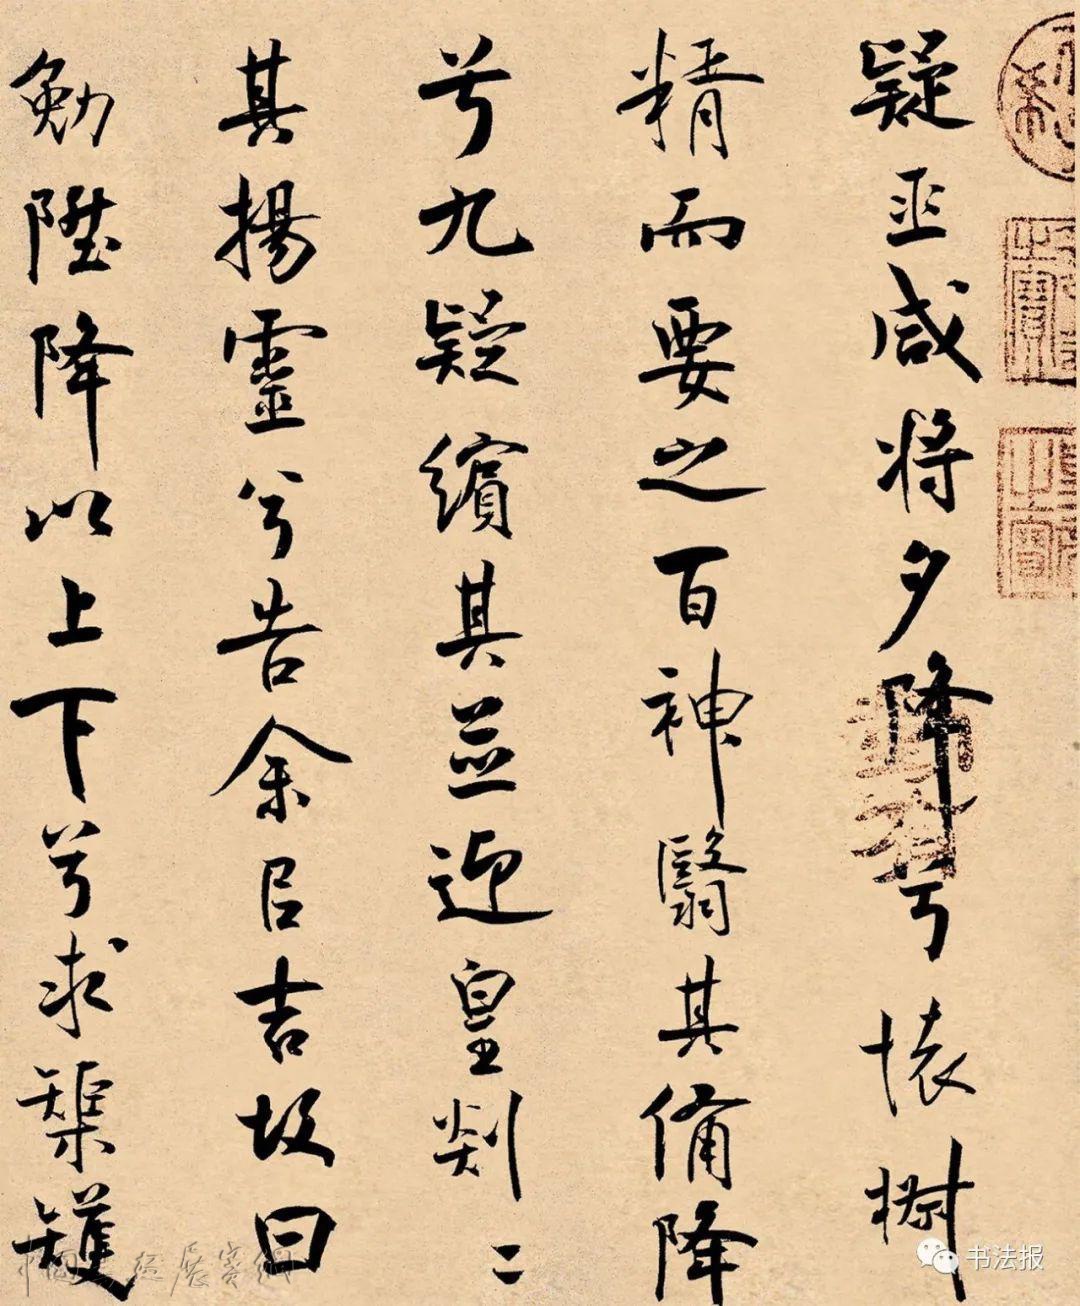 疑巫咸将夕降兮懷椒
精而要之百神翳其俻降
兮九疑繽其並迎皇剡二
其揚靈兮告余㠯吉故曰
勉陞降以上下兮求榘矱
书法报